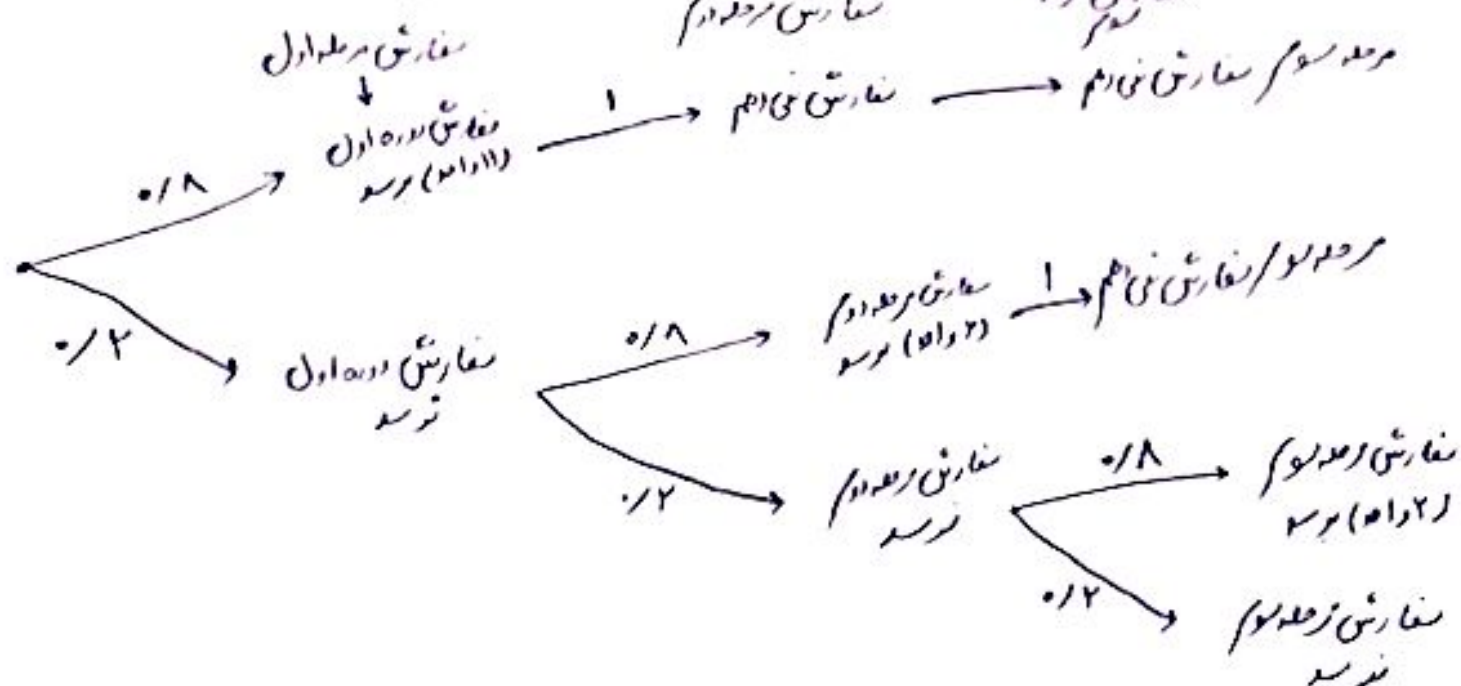 سفارش مرحله دوم
سوم
سفارش مرحله اول
سفارش دوره اول
(۱۱ واحد) برسد
۰/۸
۱
سفارش نمی‌دهم
مرحله سوم سفارش نمی‌دهم
۰/۲
سفارش دوره اول
نرسد
۰/۸
سفارش مرحله دوم
(۲ واحد) برسد
۱
مرحله سوم سفارش نمی‌دهم
۰/۲
سفارش مرحله دوم
نرسد
۰/۸
سفارش مرحله سوم
(۲ واحد) برسد
۰/۲
سفارش مرحله سوم
نرسد